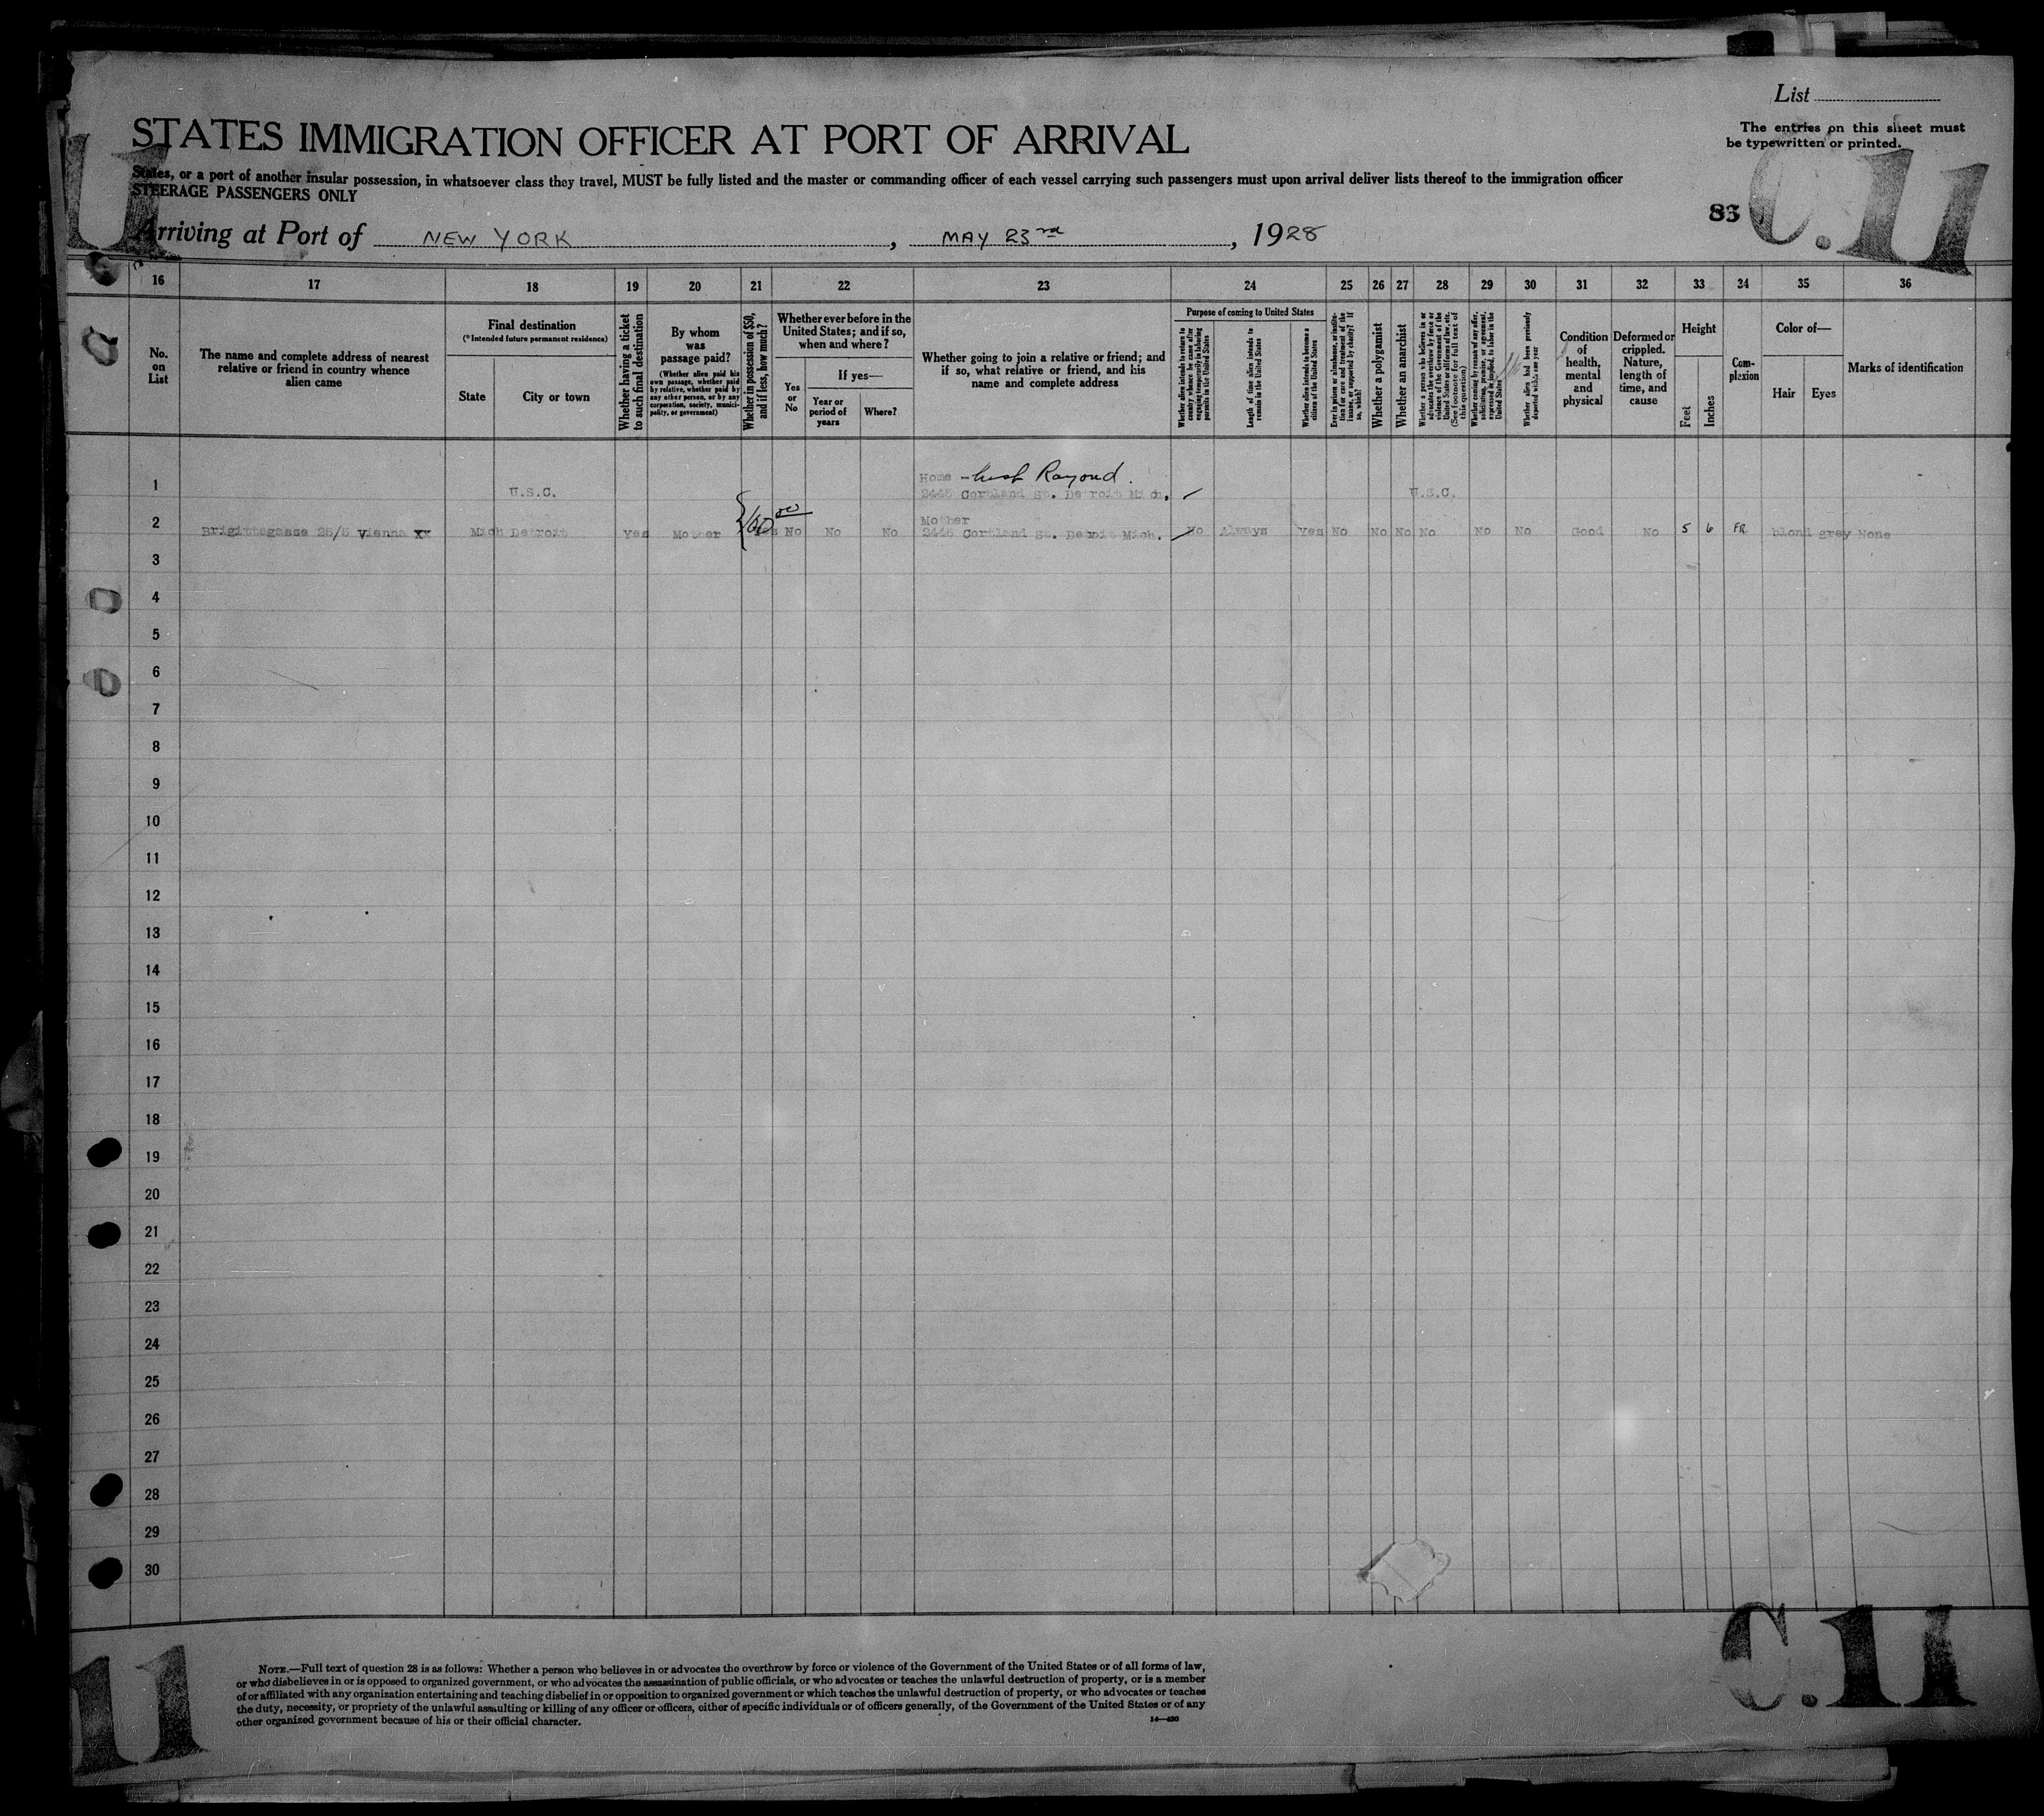 List
STATES IMMIGRATION OFFICER AT PORT OF ARRIVAL
The entries on this sheet must
be typewritten or printed.
States, or a port of another insular possession, in whatsoever class they travel, MUST be fully listed and the master or commanding officer of each vessel carrying such passengers must upon arrival deliver lists thereof to the immigration officer
STEERAGE PASSENGERS ONLY
83
C.11
Arriving at Port of NEW YORK, MAY 23rd, 1928
16 17 18 19 20 21 22 23 24 25 26 27 28 29 30 31 32 33 34 35 36
No. on List
The name and complete address of nearest relative or friend in country whence alien came
Final destination
(*Intended future permanent residence)
State
City or town
Whether having a ticket to such final destination
By whom was passage paid?
(Whether alien paid his own passage, whether paid by relative, whether paid by any other person, or by any corporation, society, municipality, or government)
Whether in possession of $50, and if less, how much?
Whether ever before in the United States; and if so, when and where?
Yes or No
If yes—
Year or period of years
Where?
Whether going to join a relative or friend; and if so, what relative or friend, and his name and complete address
Purpose of coming to United States
Whether alien intends to return to country whence he came after engaging temporarily in laboring pursuits in the United States
Length of time alien intends to remain in the United States
Whether alien intends to become a citizen of the United States
Ever in prison or almshouse, or institution for care and treatment of the insane, or supported by charity? If so, which?
Whether a polygamist
Whether an anarchist
Whether a person who believes in or advocates the overthrow by force or violence of the Government of the United States or all forms of law, etc. (See footnote for full text of this question)
Whether coming by reason of any offer, solicitation, promise, or agreement, expressed or implied, to labor in the United States
Whether alien had been previously deported within one year
Condition of health, mental and physical
Deformed or crippled. Nature, length of time, and cause
Height
Feet
Inches
Complexion
Color of—
Hair
Eyes
Marks of identification
1 U.S.C. Home - Raymond. U.S.C.
2445 Cortland St. Detroit Mich.
100 00
2 Brigittagasse 25/5 Vienna xx Mich Detroit Yes Mother Yes No No No Mother
2445 Cortland St. Detroit Mich. No Always Yes No No No No No No Good No 5 6 FR. blond grey None
3
4
5
6
7
8
9
10
11
12
13
14
15
16
17
18
19
20
21
22
23
24
25
26
27
28
29
30
11
C.11
NOTE.—Full text of question 28 is as follows: Whether a person who believes in or advocates the overthrow by force or violence of the Government of the United States or of all forms of law,
or who disbelieves in or is opposed to organized government, or who advocates the assassination of public officials, or who advocates or teaches the unlawful destruction of property, or is a member
of or affiliated with any organization entertaining and teaching disbelief in or opposition to organized government or which teaches the unlawful destruction of property, or who advocates or teaches
the duty, necessity, or propriety of the unlawful assaulting or killing of any officer or officers, either of specific individuals or of officers generally, of the Government of the United States or of any
other organized government because of his or their official character.
14—430